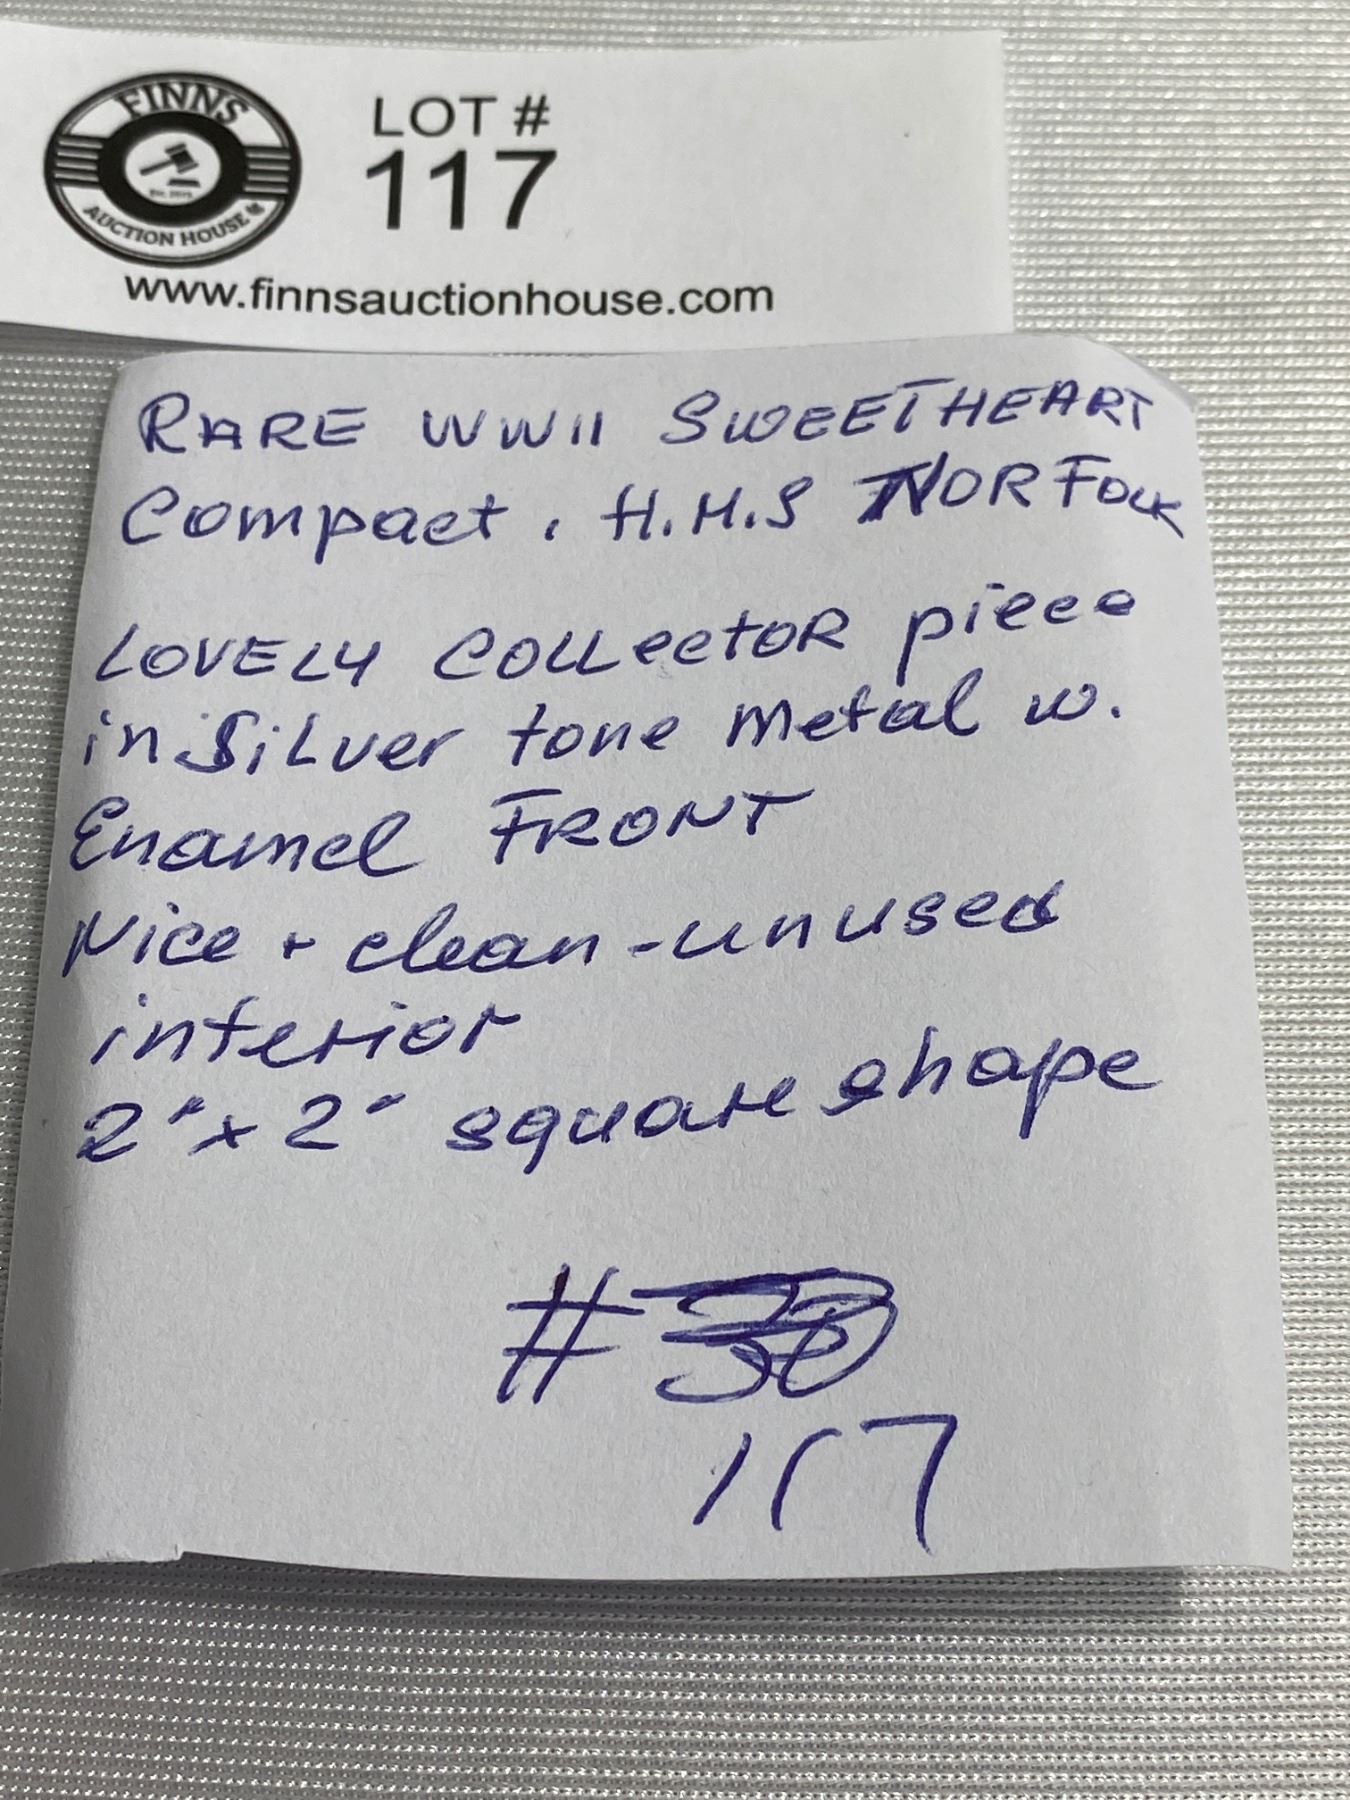 FINNS
EST. 2015
AUCTION HOUSE
LOT #
117
www.finnsauctionhouse.com
RARE WWII SWEETHEART
Compact. H.M.S NORFOLK
LOVELY COLLECTOR piece
in Silver tone Metal w.
Enamel FRONT
Nice + clean - unused
interior
2" x 2" square shape
#
117